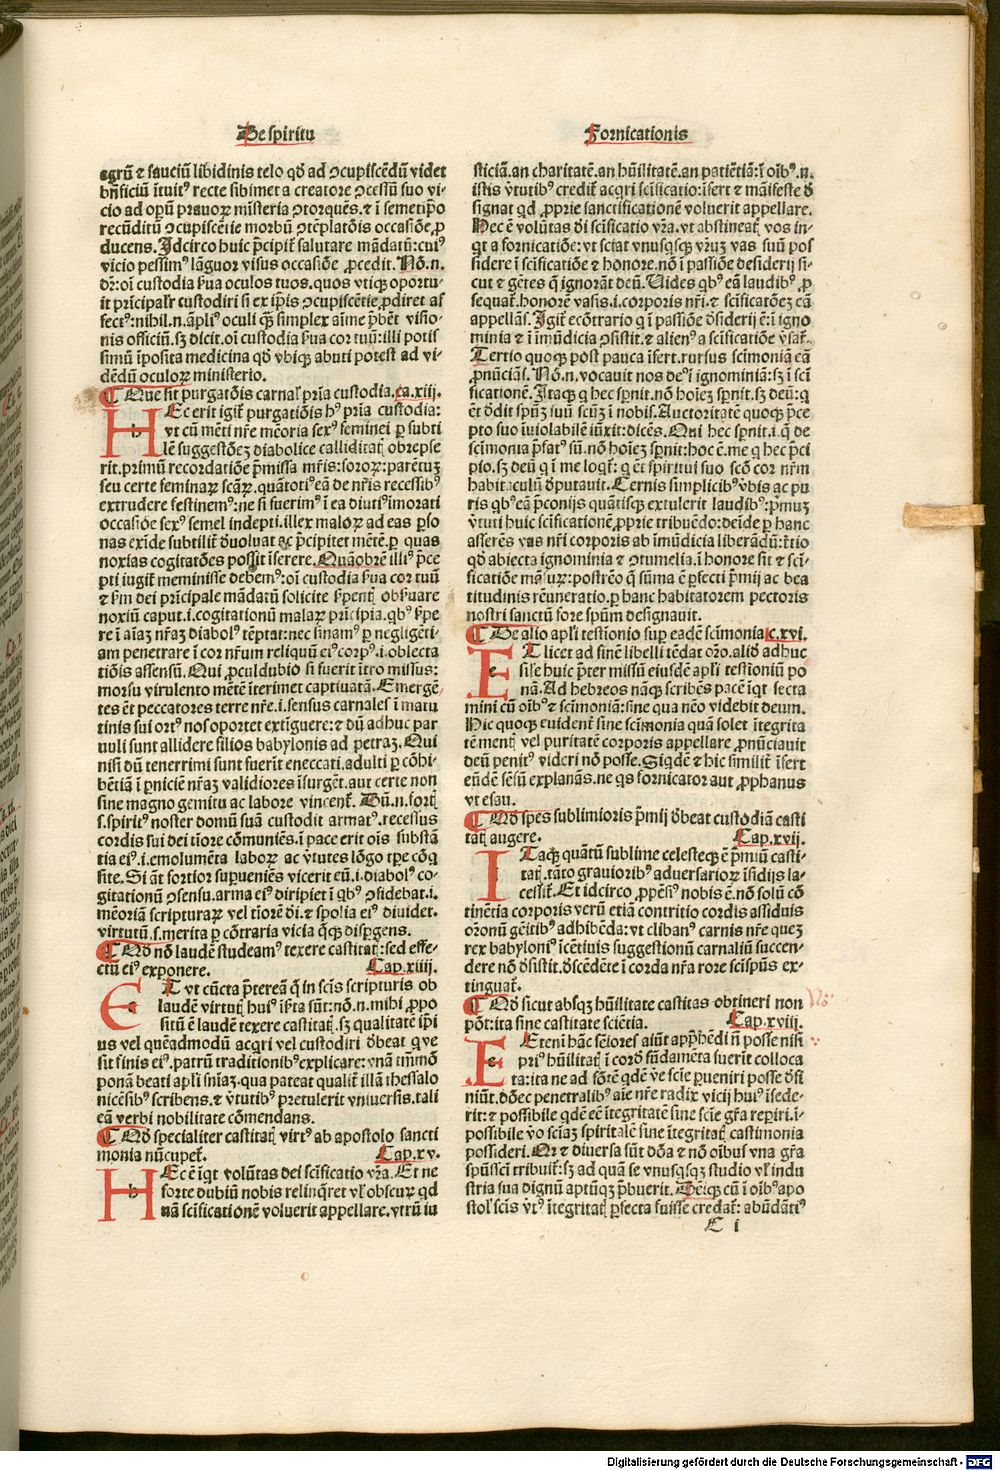 De spiritu
Fornicationis
egrũ ⁊ sauciũ libidinis telo qđ ad ꝯcupiscẽdũ videt
bñficiũ ĩtuitꝰ recte sibimet a creatore ꝯcessũ suo vi-
cio ad opeꝝ prauoꝝ mĩsteria ꝯtorquẽs. ⁊ ĩ semetip̃o
recũditũ ꝯcupiscẽtie morbũ ꝯtẽplatõis occasiõe ꝓ
ducens. Idcirco huic p̃cipit̃ salutare mãdatũ: cuiꝰ
vicio pessimꝰ lãguor visus occasiõe ꝓcedit. Nõ.n.
dr̃: oĩ custodia ẜua oculos tuos. quos vtiqꝫ oportu-
it prĩcipalr̃ custodiri si ex ip̃is ꝯcupiscẽtie ꝓdiret af
fectꝰ: nihil.n. ãpliꝰ oculi qꝫ simplex aĩme p̃bẽt visio-
nis officiũ. sꝫ dicit. oĩ custodia ẜua cor tuũ: illi potis
simũ ĩposita medicina qđ vbiqꝫ abuti potest ad vi-
dẽdũ oculoꝝ ministerio.
¶ Que sit purgatõis carnaľ prĩa custodia. ca.xiij.
HEc erit igit̃ purgatiõis hꝰ prĩa custodia:
vt cũ mẽti nr̃e mẽoria sexꝰ feminei ꝑ subti
lẽ suggestõeꝫ diabolice calliditatꝭ obrepse
rit. primũ recordatiõe p̃missa mr̃is: soroꝝ: parẽtuꝫ
seu certe feminaꝝ scãꝝ. quãtotiꝰ eã de nr̃is recessibꝰ
extrudere festinemꝰ: ne si fuerimꝰ ĩ ea diutiꝰ ĩmorati
occasiõe sexꝰ semel indepti. illex maloꝝ ad eas ꝑso
nas exĩde subtilit̃ đuoluat ac p̃cipitet mẽtẽ. ꝑ quas
noxias cogitatões possit ĩserere. Quãobrẽ illiꝰ p̃ce
pti iugit̃ meminisse debemꝰ: oĩ custodia ẜua cor tuũ
⁊ ẜm dei prĩcipale mãdatũ solicite ẜpentꝭ obẜuare
noxiũ caput. i. cogitationũ malaꝝ prĩcipia. qbꝰ ẜpe
re ĩ aĩaꝫ nr̃aꝫ diabolꝰ tẽptat: nec sinamꝰ ꝑ negligẽti-
am penetrare ĩ cor nr̃um reliquũ eiꝰ corpꝰ. i. oblecta
tiõis assensũ. Qui ꝓculdubio si fuerit ĩtro missus:
morsu virulento mẽtẽ ĩterimet captiuatã. Emergẽ-
tes ẽt peccatores terre nr̃e. i. sensus carnales ĩ matu
tinis sui ortꝰ nos oportet extĩguere: ⁊ dũ adhuc par
uuli sunt allidere filios babylonis ad petraꝫ. Qui
nisi dũ tenerrimi sunt fuerĩt eneccati. adulti ꝑ cõhi-
bẽtiã ĩ ꝑniciẽ nr̃aꝫ validiores ĩsurgẽt. aut certe non
sine magno gemitu ac labore vincent̃. Dũ.n. fortꝭ
.s. spiritꝰ noster domũ suã custodit armatꝰ. recessus
cordis sui dei tĩore cõmuniẽs. ĩ pace erit oĩs substã
tia eiꝰ. i. emolumẽta laboꝝ ac v̾tutes lõgo tꝑe cõq
site. Si ãt fortior supueniẽs vicerit eũ. i. diabolꝰ co-
gitationũ ꝯsensu. arma eiꝰ diripiet ĩ qbꝰ ꝯfidebat. i.
mẽoriã scripturaꝝ vel tĩorẽ đi. ⁊ spolia eiꝰ diuidet.
virtutũ. s. merita ꝑ cõtraria vicia q̃qꝫ disꝑgens.
¶ Qđ nõ laudẽ studeamꝰ texere castitatꝭ: sed effe-
ctũ eiꝰ exponere. Cap.xiiij.
ET vt cũcta p̃tereã q̃ in scĩs scripturis ob
laudẽ virtutꝭ huiꝰ ĩẜta sũt: nõ.n. mihi ꝓpo
situ ẽ laudẽ texere castitatꝭ. sꝫ qualitatẽ ip̃i
us vel quẽadmodũ acqri vel custodiri đbeat q̃ue
sit f̾inis eiꝰ. patrũ traditionibꝰ explicare: vnã tm̃mõ
ponã beati apl̃i sñĩaꝫ. qua pateat qualit̃ illã thessalo
nicẽsibꝰ scribens. ⁊ v̾tutibꝰ pretulerit vniuersis. tali
eã verbi nobilitate cõmendans.
¶ Qđ specialiter castitatꝭ virtꝰ ab apostolo sancti
monia nũcupet̃. Cap.xv.
HEc ẽ iqt volũtas dei scĩficatio vr̃a. Et ne
forte dubiũ nobis relinq̃ret vľ obscuꝝ qd
nã scĩficationẽ voluerit appellare. vtrũ iu
sticiã. an charitatẽ. an hũilitatẽ. an patiẽtiã: ĩ oĩbꝰ.n.
istis v̾tutibꝰ credit̃ acqri scĩficatio: ĩsert ⁊ mãifeste đ
signat qd ꝓprie sanctificationẽ voluerit appellare.
Hec ẽ volũtas đi scĩficatio vr̃a. vt abstineatꝭ vos in-
qt a fornicatiõe: vt sciat vnusqsqꝫ vr̃uꝫ vas suũ pos
sidere ĩ scĩficatiõe ⁊ honore. nõ ĩ passiõe desiderij si-
cut ⁊ gẽtes q̃ ignorãt deũ. Uides qbꝰ eã laudibꝰ ꝓ
sequat̃. honorẽ vasis. i. corporis nr̃i. ⁊ scĩficatõeꝫ eã
appellãs. Igit̃ ecõtrario q̃ ĩ passiõe đsiderij ẽ: ĩ igno
minia ⁊ ĩ imũdicia ꝯsistit. ⁊ alienꝰ a scĩficatiõe v̾sat̃.
Tertio quoqꝫ post pauca ĩsert. rursus scĩmoniã eã
ꝓnũciãs. Nõ.n. vocauit nos deꝰ ĩ ignominiã: sꝫ ĩ scĩ
ficationẽ. Itaqꝫ q hec sp̃nit. nõ hoĩeꝫ sp̃nit. sꝫ deũ: q
ẽt đdit sp̃uꝫ suũ scũꝫ ĩ nobis. Auctoritatẽ quoqꝫ p̃ce
pto suo ĩuiolabilẽ iũxit: dicẽs. Qui hec sp̃nit. i. q̃ de
scĩmonia p̃fatꝰ sũ. nõ hoĩeꝫ sp̃nit: hoc ẽ. me q hec p̃ci
pio. sꝫ deũ q ĩ me loqt̃: q ẽt spiritui suo scõ cor nr̃m
habitaculũ đputauit. Cernis simplicibꝰ v̾bis ac pu
ris qbꝰ eã p̃conijs quãtisqꝫ extulerit laudibꝰ: p̃muꝫ
v̾tuti huic scĩficationẽ ꝓprie tribuẽdo: deĩde ꝑ hanc
asserẽs vas nr̃i corporis ab ĩmũdicia liberãdũ: t̾tio
qđ abiecta ignominia ⁊ ꝯtumelia. ĩ honore sit ⁊ scĩ-
ficatiõe mãsuꝝ: postrẽo q̃ sũma ẽ ꝑfecti p̃mij ac bea
titudinis rẽuneratio. ꝑ hanc habitatorem pectoris
nostri sanctũ fore spũm designauit.
¶ De alio apl̃i testĩonio suꝑ eadẽ scĩmonia c.xvi.
ET licet ad finẽ libelli tẽdat or̃o. aliđ adhuc
siľe huic p̃ter missũ eiusdẽ apl̃i testĩoniũ po
nã. Ad hebreos nãqꝫ scribẽs pacẽ iqt secta
mini cũ oĩbꝰ ⁊ scĩmoniã: sine qua nẽo videbit deum.
Hic quoqꝫ euident̃ sine scĩmonia quã solet ĩtegrita
tẽ mentꝭ vel puritatẽ corporis appellare ꝓnũciauit
deũ penitꝰ videri nõ posse. Siqdẽ ⁊ hic similit̃ ĩsert
eũdẽ sẽsũ explanãs. ne qs fornicator aut ꝓphanus
vt esau.
¶ Qđ spes sublimioris p̃mij đbeat custodiã casti
tatꝭ augere. Cap.xvij.
ITaqꝫ quãtũ sublime celesteqꝫ ẽ p̃miũ casti-
tatꝭ. tãto grauioribꝰ aduersarioꝝ ĩsidijs la-
cessit̃. Et idcirco ꝓpẽsiꝰ nobis ẽ. nõ solũ cõ
tinẽtia corporis verũ etiã contritio cordis assiduis
or̃onũ gẽitibꝰ adhibẽda: vt clibanꝰ carnis nr̃e queꝫ
rex babyloniꝰ ĩcẽtiuis suggestionũ carnaliũ succen-
dere nõ đsistit. đscẽdẽte ĩ corda nr̃a rore scĩspũs ex-
tinguat̃.
¶ Qđ sicut absqꝫ hũilitate castitas obtineri non
põt: ita sine castitate sciẽtia. Cap.xviij.
EEtenĩ hãc sẽiores aiũt appr̃hẽdi ñ posse nisi
priꝰ hũilitatꝭ ĩ corđ fũdamẽta fuerĩt colloca
ta: ita ne ad fõtẽ qdẽ v̾e scĩe ꝑueniri posse đfi
niũt. đõec penetralibꝰ aĩe nr̃e radix vicij huiꝰ ĩsede-
rit: ⁊ possibile qdẽ eẽ ĩtegritatẽ sine scĩe gr̃a reꝑiri. ĩ-
possibile v̾o scĩaꝫ spiritalẽ sine ĩtegritatꝭ castimonia
possideri. Nã ⁊ diuersa sũt dõa ⁊ nõ oĩbus vna gr̃a
spũsscĩ tribuit̃: sꝫ ad quã se vnusqsqꝫ studio vľ indu
stria sua dignũ aptũqꝫ p̃buerit. Deĩqꝫ cũ ĩ oĩbꝰ apo
stoľ scĩs v̾tꝰ ĩtegritatꝭ ꝑfecta fuisse credat̃: abũdãtiꝰ
C i
Digitalisierung gefördert durch die Deutsche Forschungsgemeinschaft - DFG